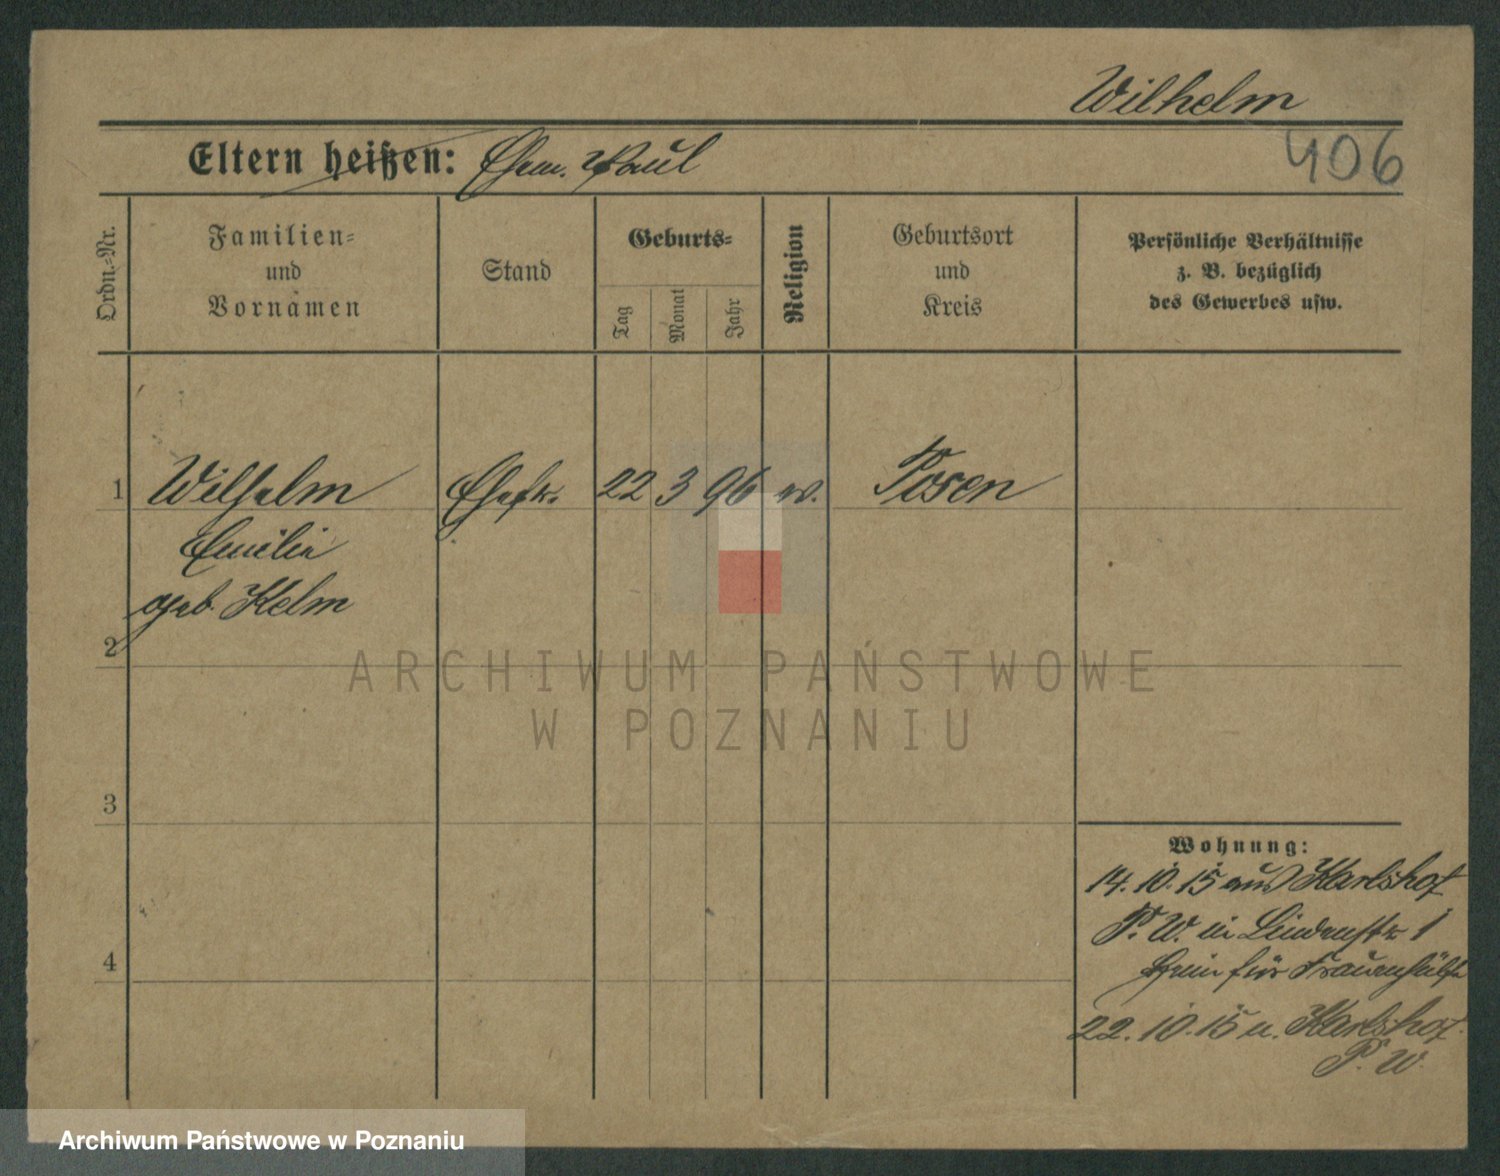 Wilhelm
406
Eltern heißen: Ehem. Paul
Ordn.-Nr.
Familien-
und
Vornamen
Stand
Geburts-
Tag
Monat
Jahr
Religion
Geburtsort
und
Kreis
Persönliche Verhältnisse
z. B. bezüglich
des Gewerbes usw.
1 Wilhelm Ehefr. 22 3 96 ev. Posen
Emilie
geb. Kelm
2
ARCHIWUM PAŃSTWOWE
W POZNANIU
3
4
Wohnung:
14.10.15 aus Karlshof
P. W. in Lindenstr 1
Heim für Frauenhülfe
22.10.15 n. Karlshof
P. W.
Archiwum Państwowe w Poznaniu